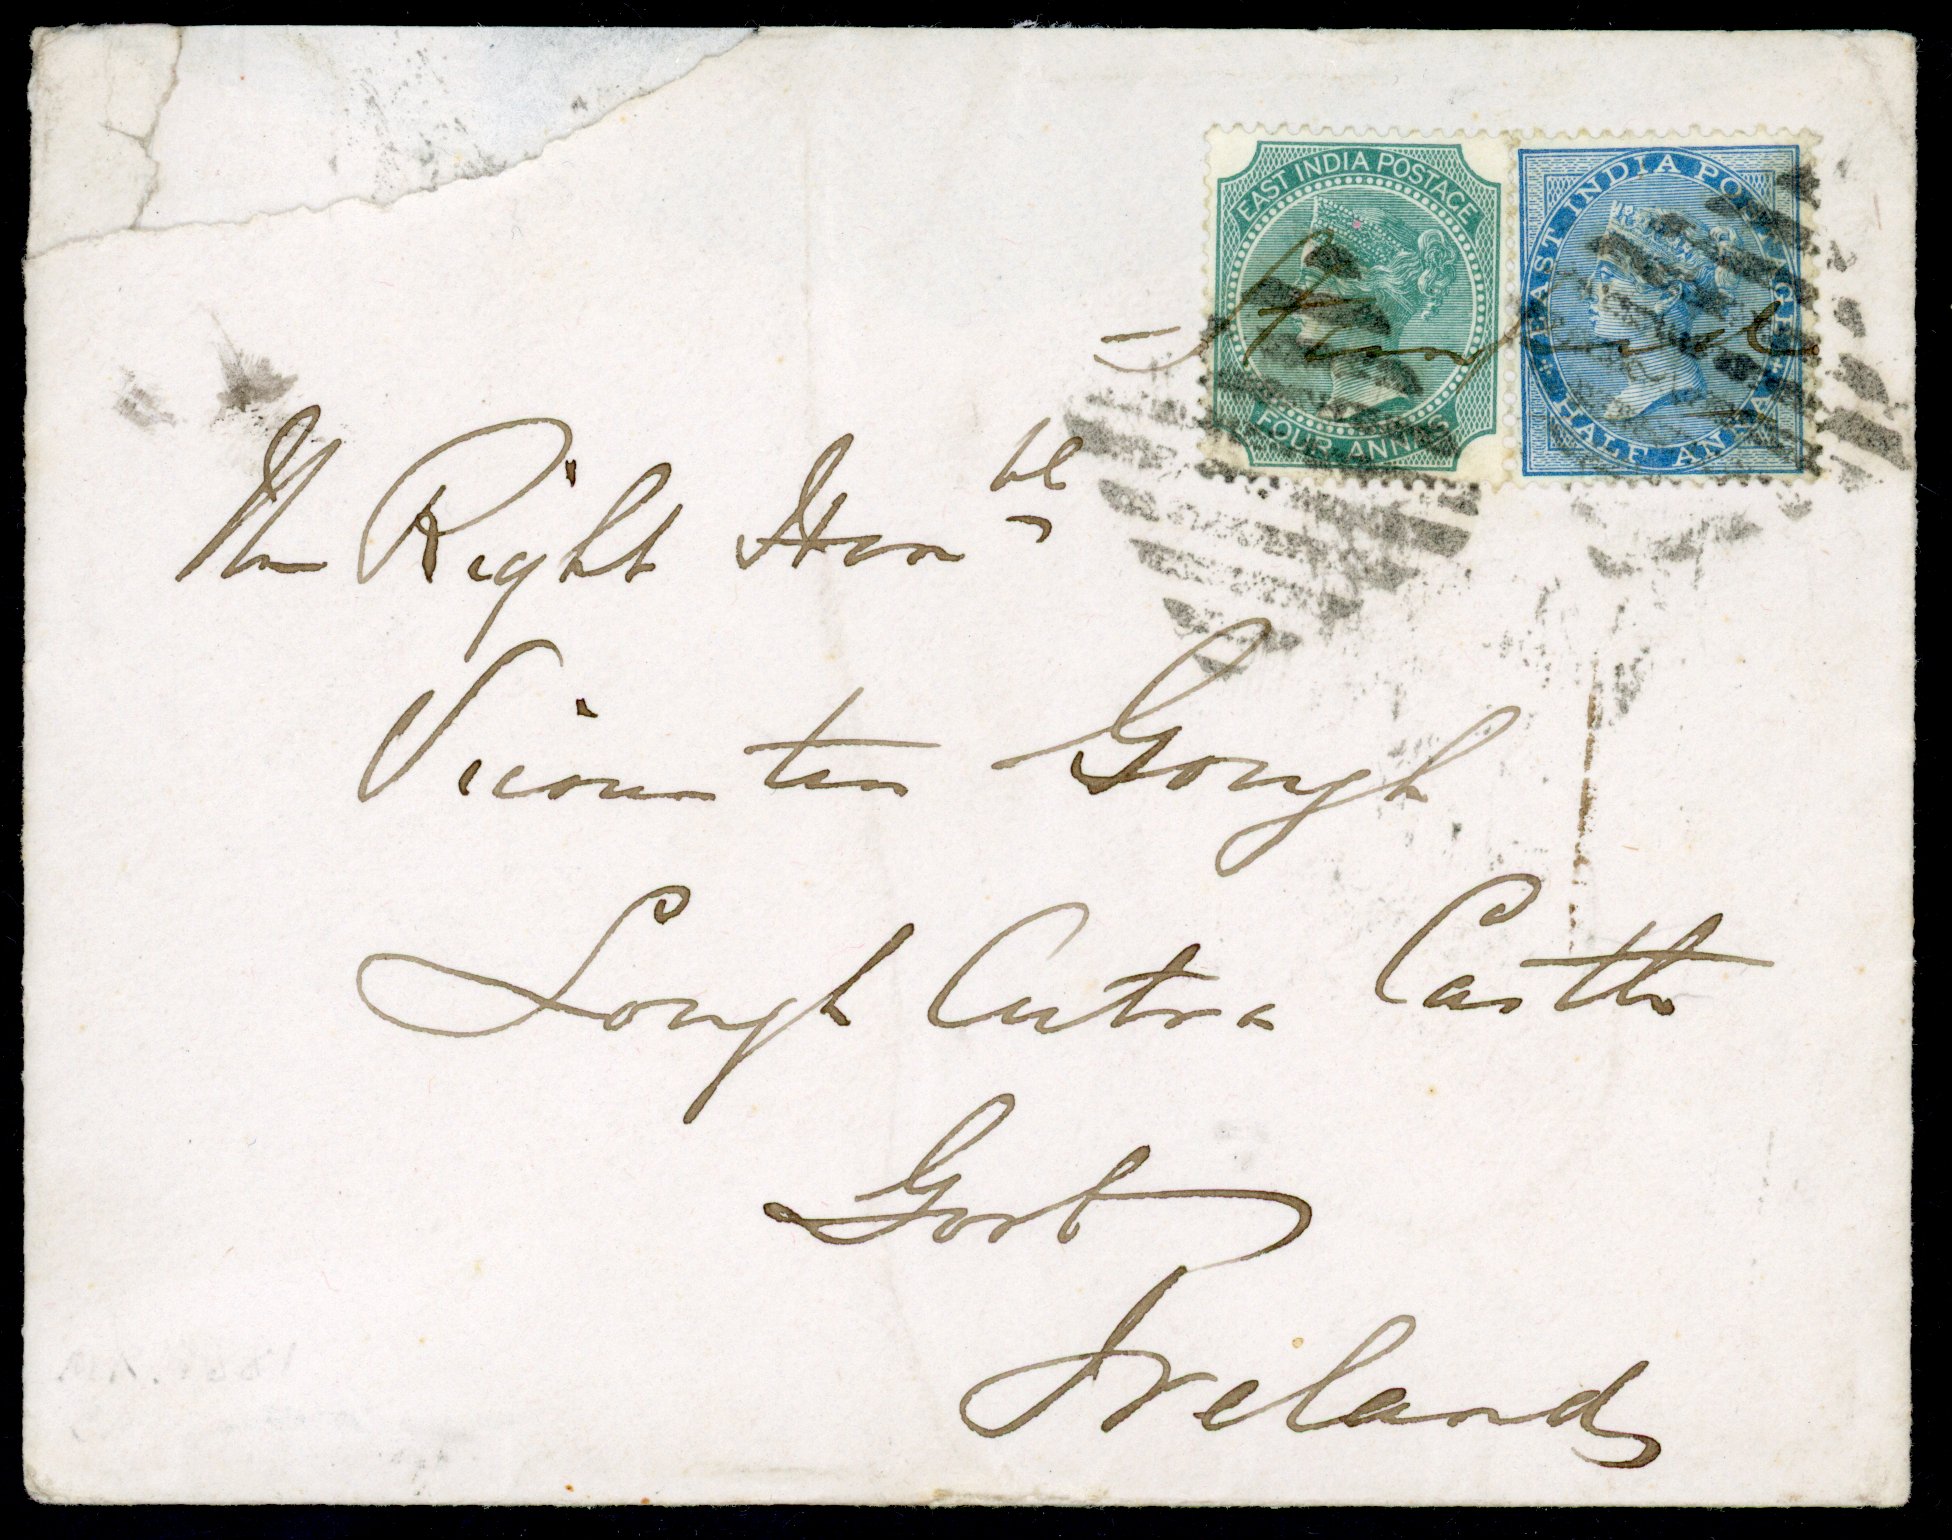 EAST INDIA POSTAGE
FOUR ANNAS
EAST INDIA POSTAGE
HALF ANNA
The Right Hon ble
Viscountess Gough
Lough Cutra Castle
Gort
Ireland